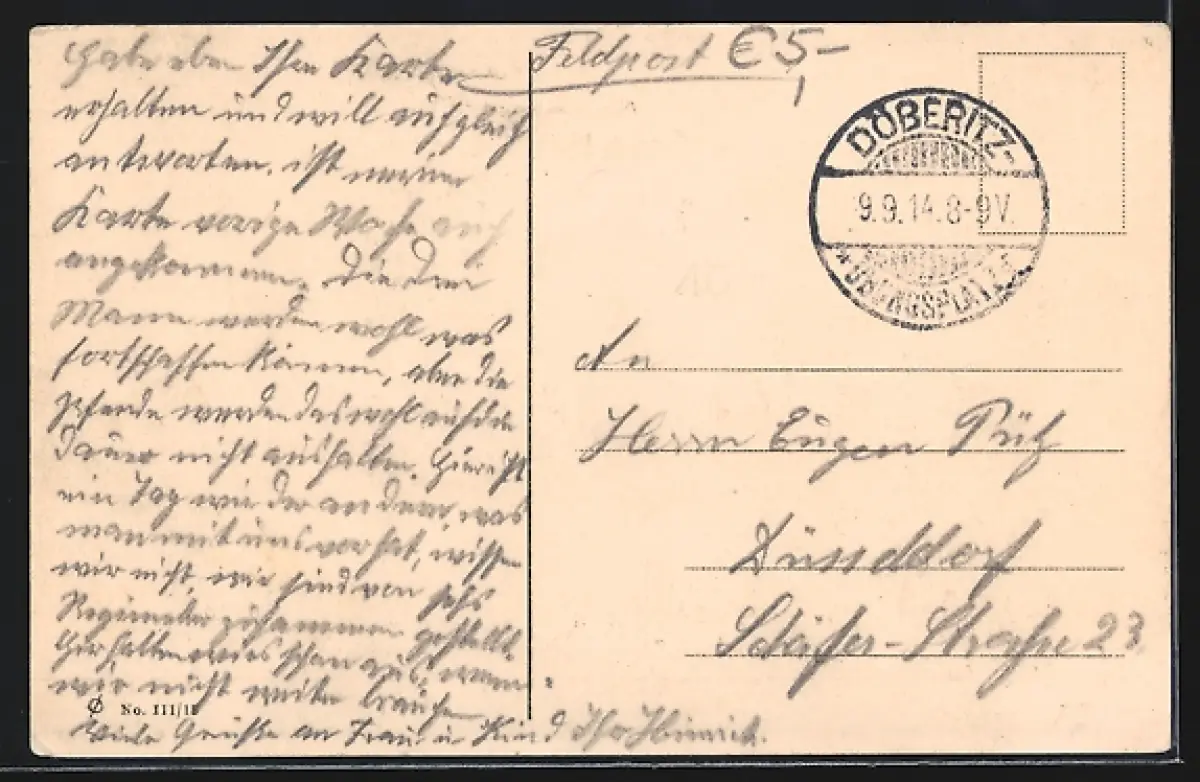 Habe eben Ihre Karte
erhalten und will auch gleich
antworten, ist meine
Karte vorige Woche auch
angekommen. Die drei
Mann werden wohl was
fortschaffen können, aber die
Pferde werden das wohl auf die
Dauer nicht aushalten. Hier ist
ein Tag wie der andere, was
man mit uns vor hat, wissen
wir nicht, wir sind von sechs
Regimenter zusammen gestellt.
Hier halten wir es schon aus, wenn
wir nicht weiter brauchen
Viele Grüße an Frau u Kind Ihr Heinrich.
No. III/1
Feldpost €5,-
DÖBERITZ-
9.9.14.8-9V.
* ÜBUNGSPLATZ *
An
Herrn Eugen Pütz
Düsseldorf
Schäfer-Straße 23